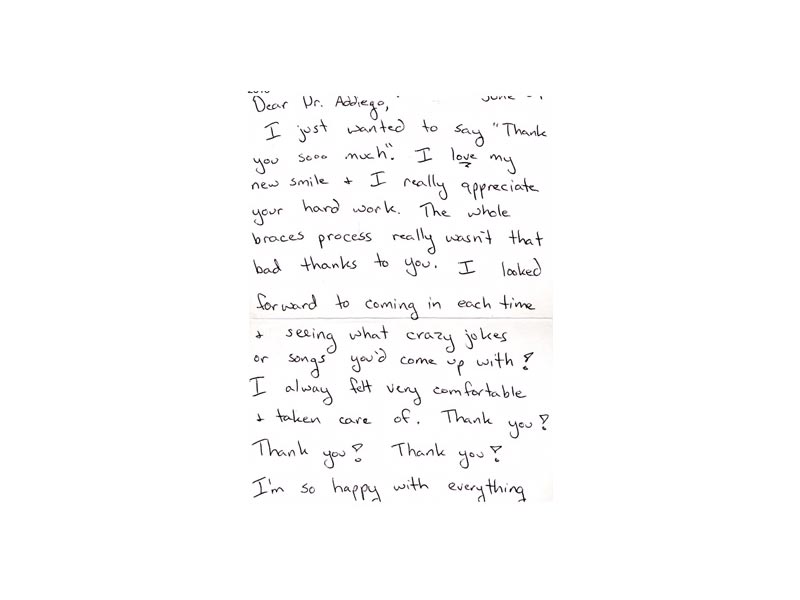 June
Dear Dr. Addiego,
I just wanted to say "Thank
you sooo much". I love my
new smile + I really appreciate
your hard work. The whole
braces process really wasn't that
bad thanks to you. I looked
forward to coming in each time
+ seeing what crazy jokes
or songs you'd come up with!
I alway felt very comfortable
+ taken care of. Thank you!
Thank you! Thank you!
I'm so happy with everything